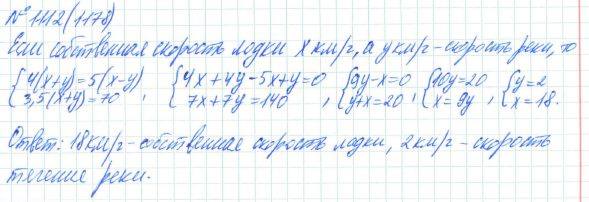 № 1112 (1178)
Если собственная скорость лодки х км/г, а у км/г – скорость реки, то
{4(x+y)=5(x-y) , {4x+4y-5x+y=0 {9y-x=0 {10y=20 {y=2
{3,5(x+y)=70 , {7x+7y=140 , {y+x=20 , {x=9y , {x=18.
Ответ: 18 км/г – собственная скорость лодки, 2 км/г – скорость
течение реки.